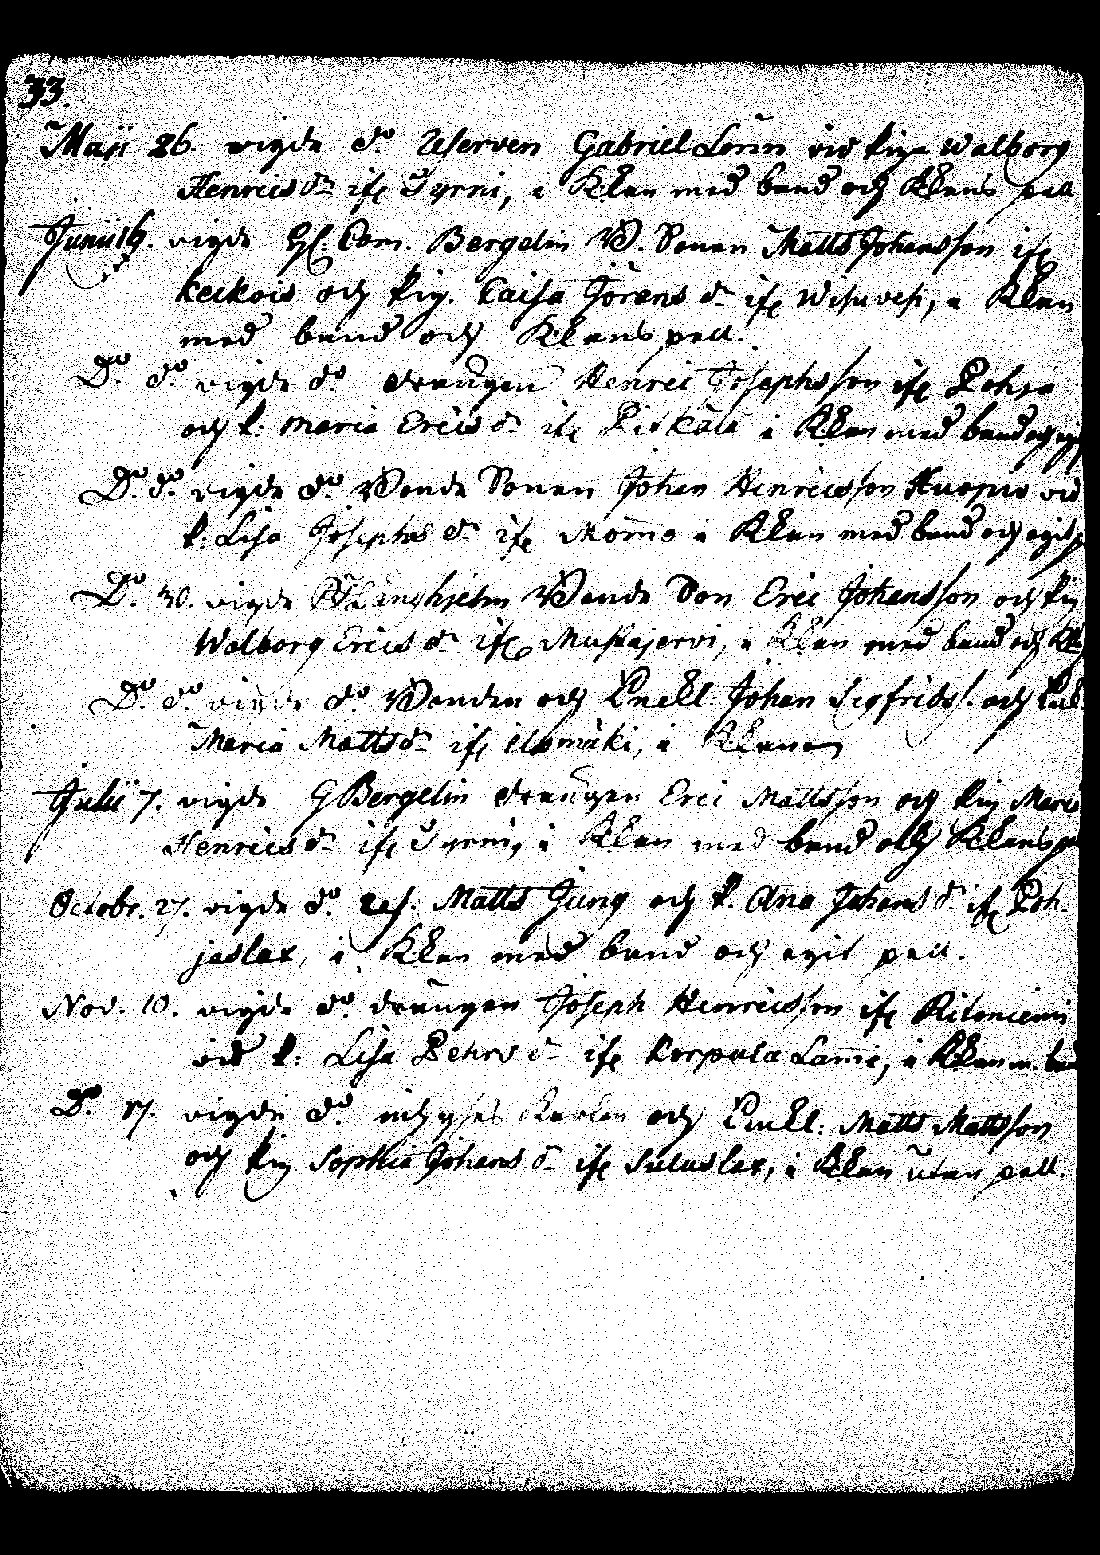 33.
Maji 26. vigde do Reserven Gabriel Lönn vid pig. Walborg
Henrics dr ifr Tyrni, i Klan med band och Klans pell
Junii 16. vigde Hl. Com. Bergelin B. Sonen Matts Johansson ifr
keckois och pig. Caisa Jörans dr ifr i Klan
med band och Klans pell.
Do do vigde do drängen Henric Josephsson ifr Pohja
och p. Maria Erics dr ifr Piskala i Klan med band och
Do do vigde do Bonde Sonen Johan Henricsson Kuopio vid
p. Lisa Josephs dr ifr Momo i Klan med band och egit
Do 30. vigde Bonde Son Eric Johansson och pig
Walborg Erics dr ifr Muskajervi, i Klan med band och
Do do vigde do Bonden och Enkl. Johan Sigfridss. och Enk.
Maria Matts dr ifr ilomäki, i Klanen
Julii 7. vigde G Bergelin drängen Eric Mattsson och pig Maria
Henrics dr ifr Tyrni, i Klan med band och Klans
Octobr. 27. vigde do res. Matts Jung och p. Ana Johans dr ifr Poh-
jaslax, i Klan med band och egit pell.
Nov. 10. vigde do drängen Joseph Henricsson ifr Ritoniemi
vid p: Lisa Pehrs dr ifr Korpula Lamie, i Klan m. band
Do 17. vigde do och Enkl: Matts Mattsson
och pig Sophia Johans dr ifr Sutuslax, i Klan utan pell.